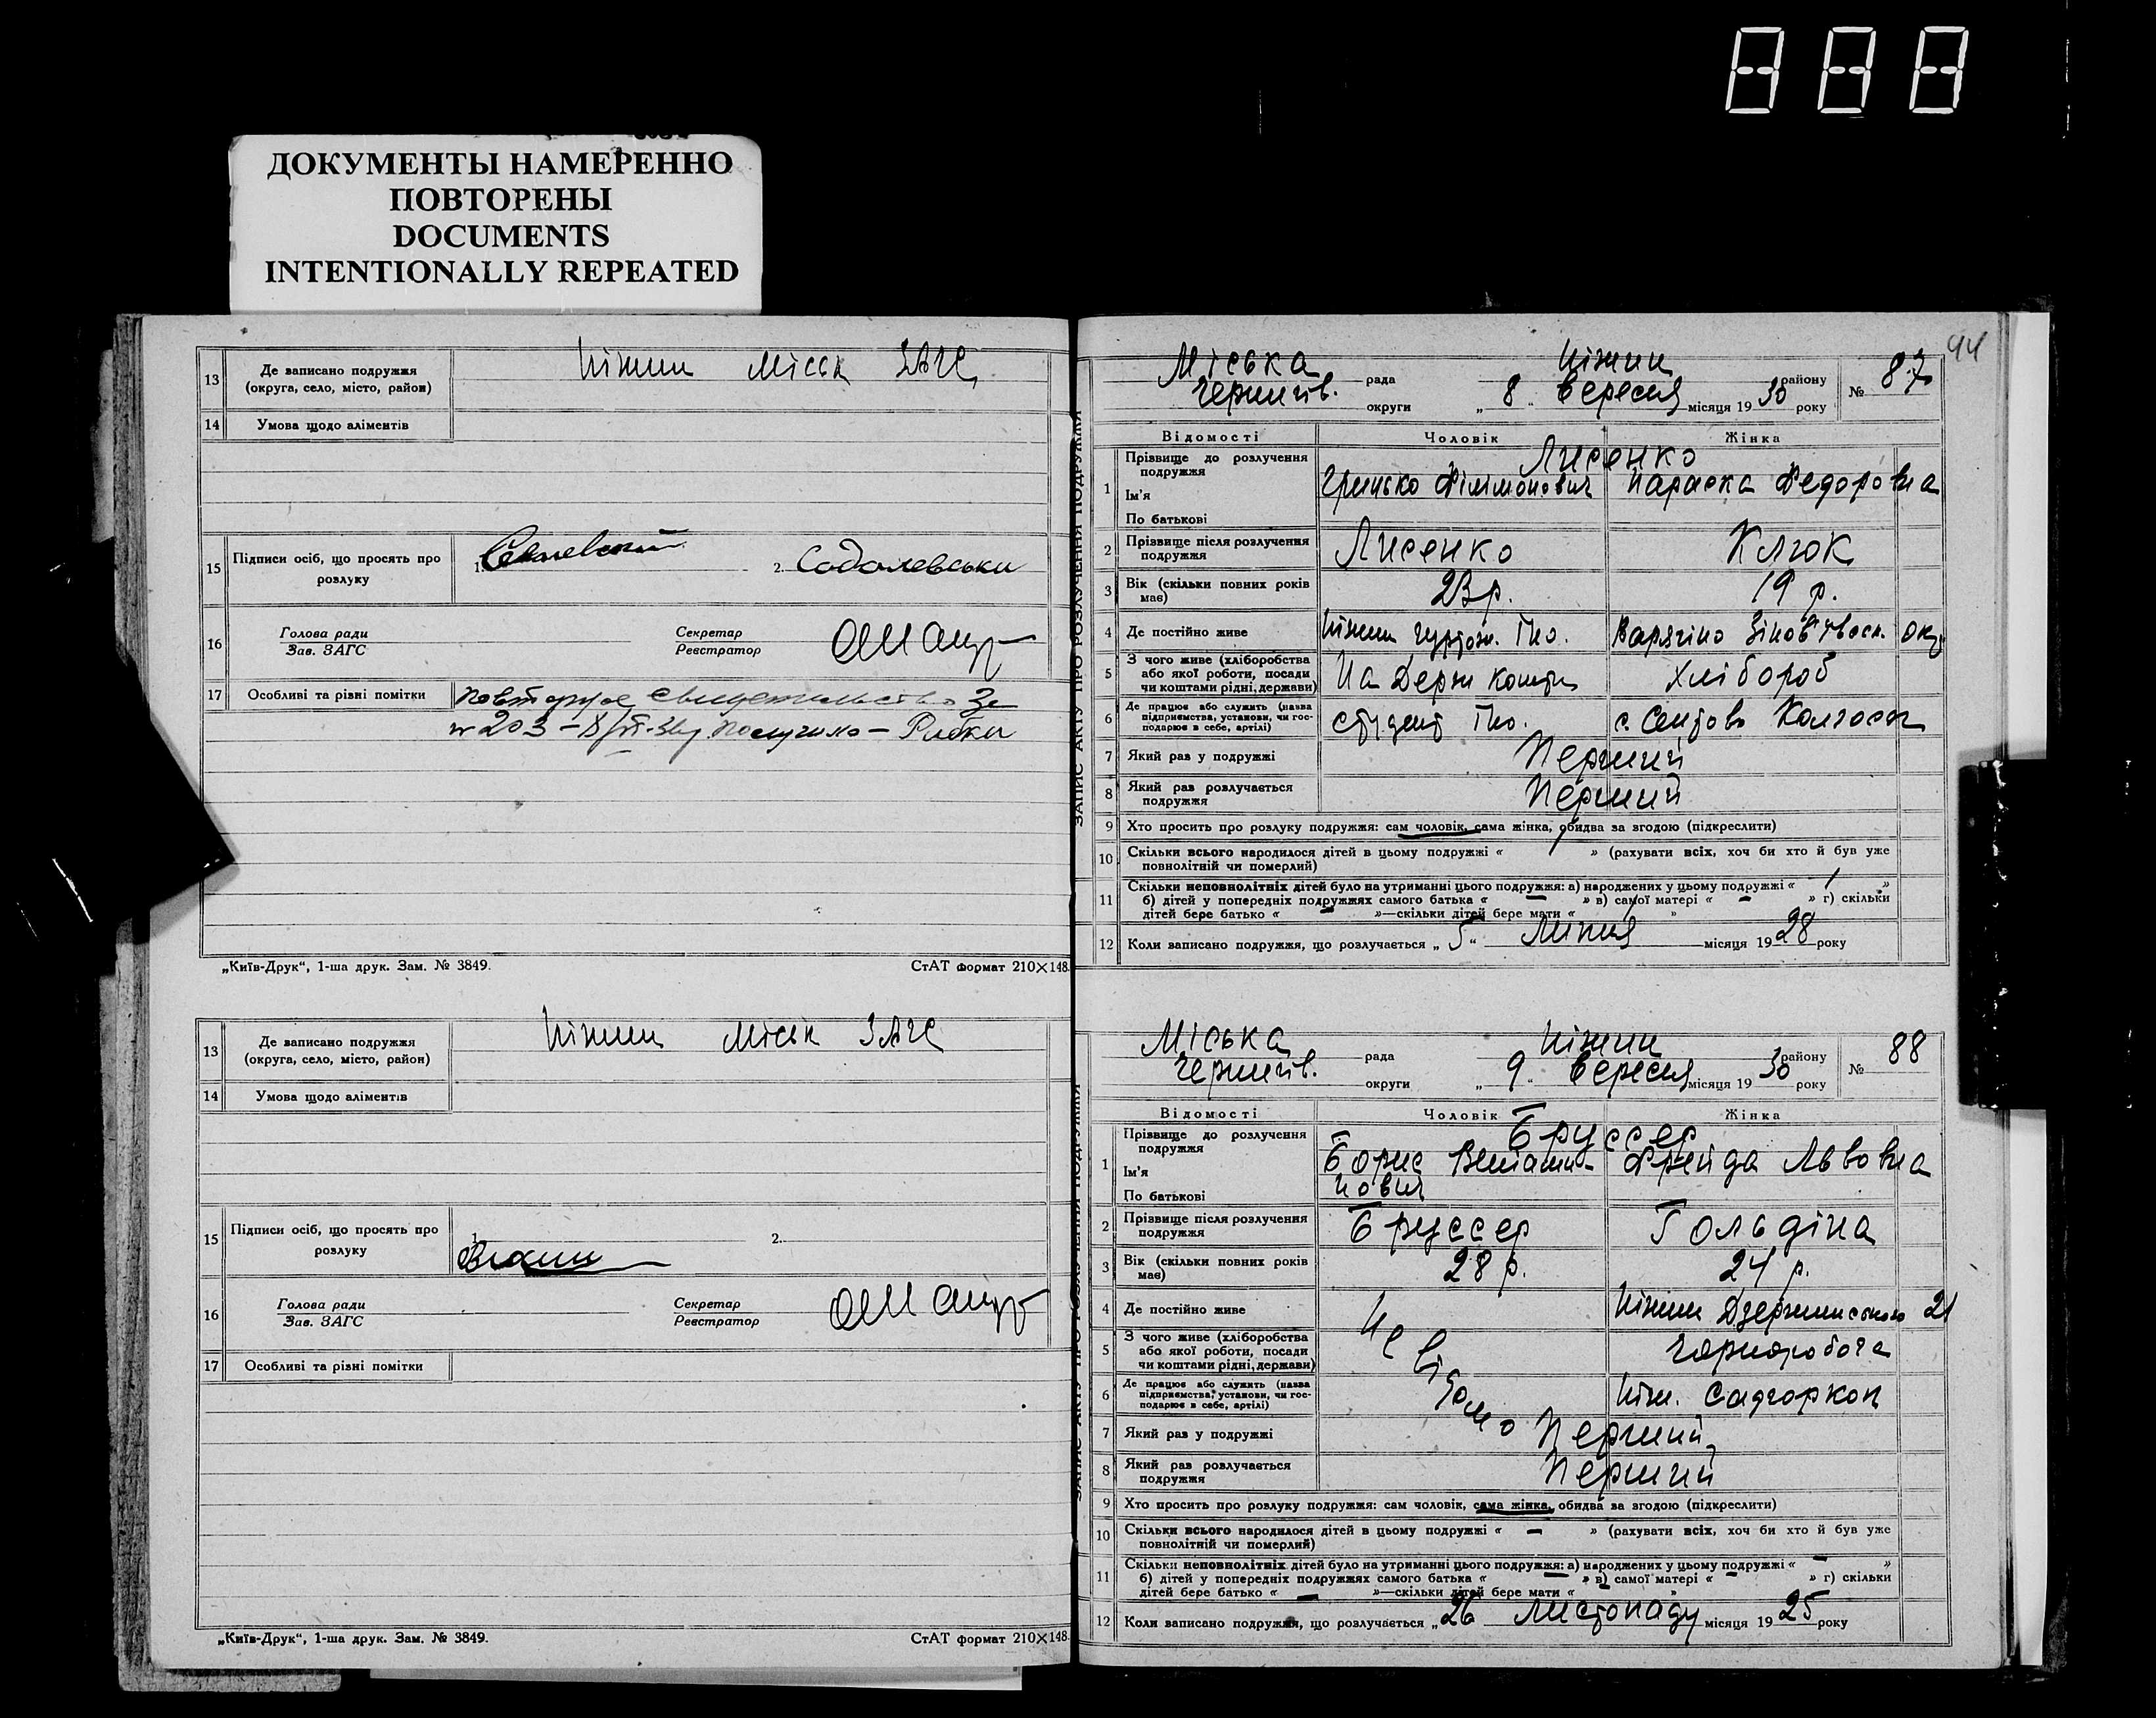 ДОКУМЕНТЫ НАМЕРЕННО
ПОВТОРЕНЫ
DOCUMENTS
INTENTIONALLY REPEATED
13 Де записано подружжя
(округа, село, місто, район)
Ніжин Міськ ЗАГС
14 Умова щодо аліментів
15 Підписи осіб, що просять про
розлуку
1. 2.
16 Голова ради
Зав. ЗАГС
Секретар
Реєстратор
17 Особливі та різні помітки
повторное свидетельство за
№ 203
„Київ-Друк“, 1-ша друк. Зам. № 3849. СтАТ формат 210×148.
13 Де записано подружжя
(округа, село, місто, район)
Ніжин Міськ ЗАГС
14 Умова щодо аліментів
15 Підписи осіб, що просять про
розлуку
1. 2.
16 Голова ради
Зав. ЗАГС
Секретар
Реєстратор
17 Особливі та різні помітки
„Київ-Друк“, 1-ша друк. Зам. № 3849. СтАТ формат 210×148.
94
ЗАПИС АКТУ ПРО РОЗЛУЧЕННЯ ПОДРУЖЖЯ
Міська рада Ніжин району № 87
Чернігів. округи „ 8 “ вересня місяця 19 30 року
Відомості Чоловік Жінка
1 Прізвище до розлучення
подружжя
Лисенко
Ім'я
Грицько Філімонович Параска Федоровна
По батькові
2 Прізвище після розлучення
подружжя
Лисенко Клюк
3 Вік (скільки повних років
має)
23 р. 19 р.
4 Де постійно живе Ніжин гуртож. Іно.
5 З чого живе (хліборобства
або якої роботи, посади
чи коштами рідні, держави)
На Держ кошти Хлібороб
6 Де працює або служить (назва
підприємства, установи, чи гос-
подарює в себе, артілі)
студент Іно. с.
7 Який раз у подружжі Перший
8 Який раз розлучається
подружжя
Перший
9 Хто просить про розлуку подружжя: сам чоловік, сама жінка, обидва за згодою (підкреслити)
10 Скільки всього народилося дітей в цьому подружжі « 1 » (рахувати всіх, хоч би хто й був уже
повнолітній чи померлий)
11 Скільки неповнолітніх дітей було на утриманні цього подружжя: а) народжених у цьому подружжі « 1 »
б) дітей у попередніх подружжях самого батька « — » в) самої матері « — » г) скільки
дітей бере батько « — »—скільки дітей бере мати « 1 »
12 Коли записано подружжя, що розлучається „ 5 “ Липня місяця 19 28 року
ЗАПИС АКТУ ПРО РОЗЛУЧЕННЯ ПОДРУЖЖЯ
Міська рада Ніжин району № 88
Чернігів. округи „ 9 “ вересня місяця 19 30 року
Відомості Чоловік Жінка
1 Прізвище до розлучення
подружжя
Бруссер
Ім'я
Борис Веніами- Фрейда Львовна
По батькові
нович
2 Прізвище після розлучення
подружжя
Бруссер Гольдіна
3 Вік (скільки повних років
має)
28 р. 24 р.
4 Де постійно живе Не відомо Ніжин Дзержинського 21
5 З чого живе (хліборобства
або якої роботи, посади
чи коштами рідні, держави)
Чорноробоча
6 Де працює або служить (назва
підприємства, установи, чи гос-
подарює в себе, артілі)
Ніж.
7 Який раз у подружжі Перший
8 Який раз розлучається
подружжя
Перший
9 Хто просить про розлуку подружжя: сам чоловік, сама жінка, обидва за згодою (підкреслити)
10 Скільки всього народилося дітей в цьому подружжі « — » (рахувати всіх, хоч би хто й був уже
повнолітній чи померлий)
11 Скільки неповнолітніх дітей було на утриманні цього подружжя: а) народжених у цьому подружжі « — »
б) дітей у попередніх подружжях самого батька « — » в) самої матері « — » г) скільки
дітей бере батько « — »—скільки дітей бере мати « — »
12 Коли записано подружжя, що розлучається „ 26 Листопаду місяця 19 25 року